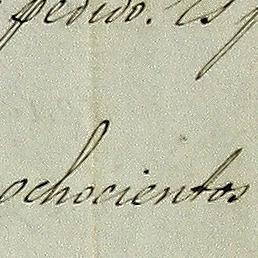 pedido. Es
ochocientos